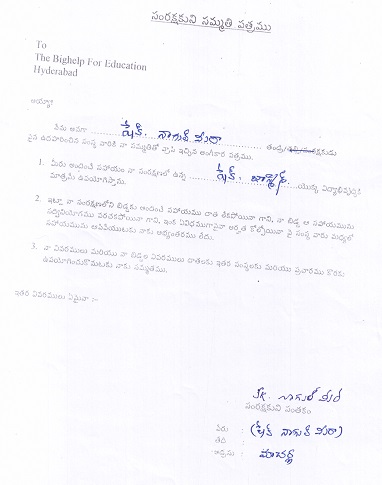 సంరక్షకుని సమ్మతి పత్రము
To
The Bighelp For Education
Hyderabad
అయ్యా!
నేను అనగా షేక్. నాగుల్ మీరా తండ్రి/తల్లి/సంరక్షకుడు
పైన ఉదహరించిన సంస్థ వారికి నా సమ్మతితో వ్రాసి ఇచ్చిన అంగీకార పత్రము.
1. మీరు అందించే సహాయం నా సంరక్షణలో ఉన్న షేక్. యొక్క విద్యాభివృద్ధికి
మాత్రమే ఉపయోగిస్తాను.
2. ఇట్లా నా సంరక్షణలోని బిడ్డకు అందించే సహాయము దాత లేకపోయినా గాని, నా బిడ్డ ఆ సహాయమును
సద్వినియోగము పరచకపోయినా గాని, ఇంక ఏవిధముగానైనా అర్హత కోల్పోయినా పై సంస్థ వారు మధ్యలో
సహాయమును ఆపివేయుటకు నాకు అభ్యంతరము లేదు.
3. నా వివరములు మరియు నా బిడ్డల వివరములు దాతలకు ఇతర సంస్థలకు మరియు ప్రచారము కొరకు
ఉపయోగించుకొనుటకు నాకు సమ్మతము.
ఇతర వివరములు ఏమైనా :-
SK. నాగుల్ మీరా
సంరక్షకుని సంతకం
పేరు : (షేక్ నాగుల్ మీరా)
తేది :
అడ్రసు : మాచర్ల